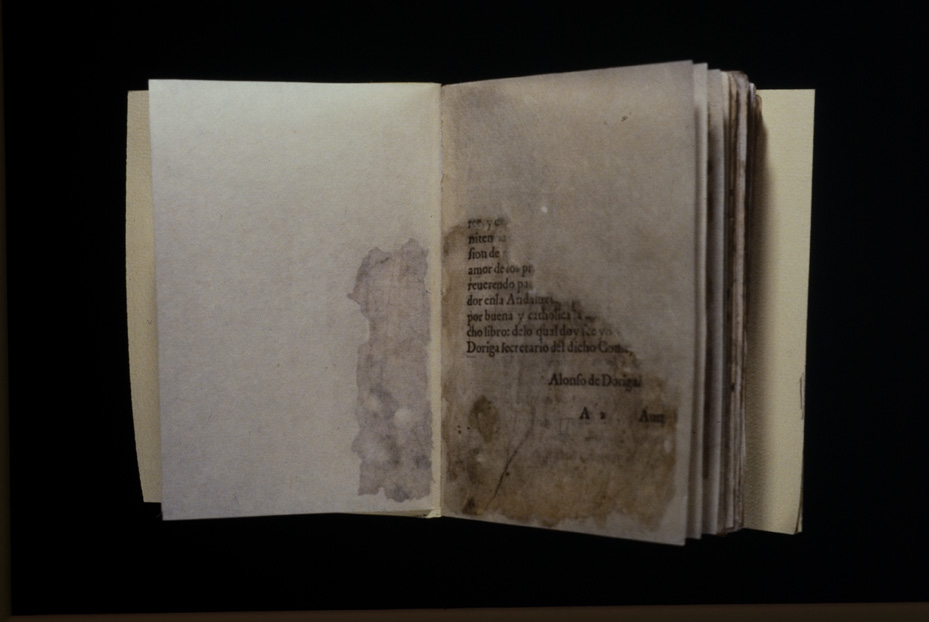 niten
sion de
amor de los pr
reuerendo pa
dor enla Andaluz
por buena y catholica
cho libro: delo qual doy fee yo
Doriga secretario del dicho Con
Alonso de Doriga
A 2 Aue